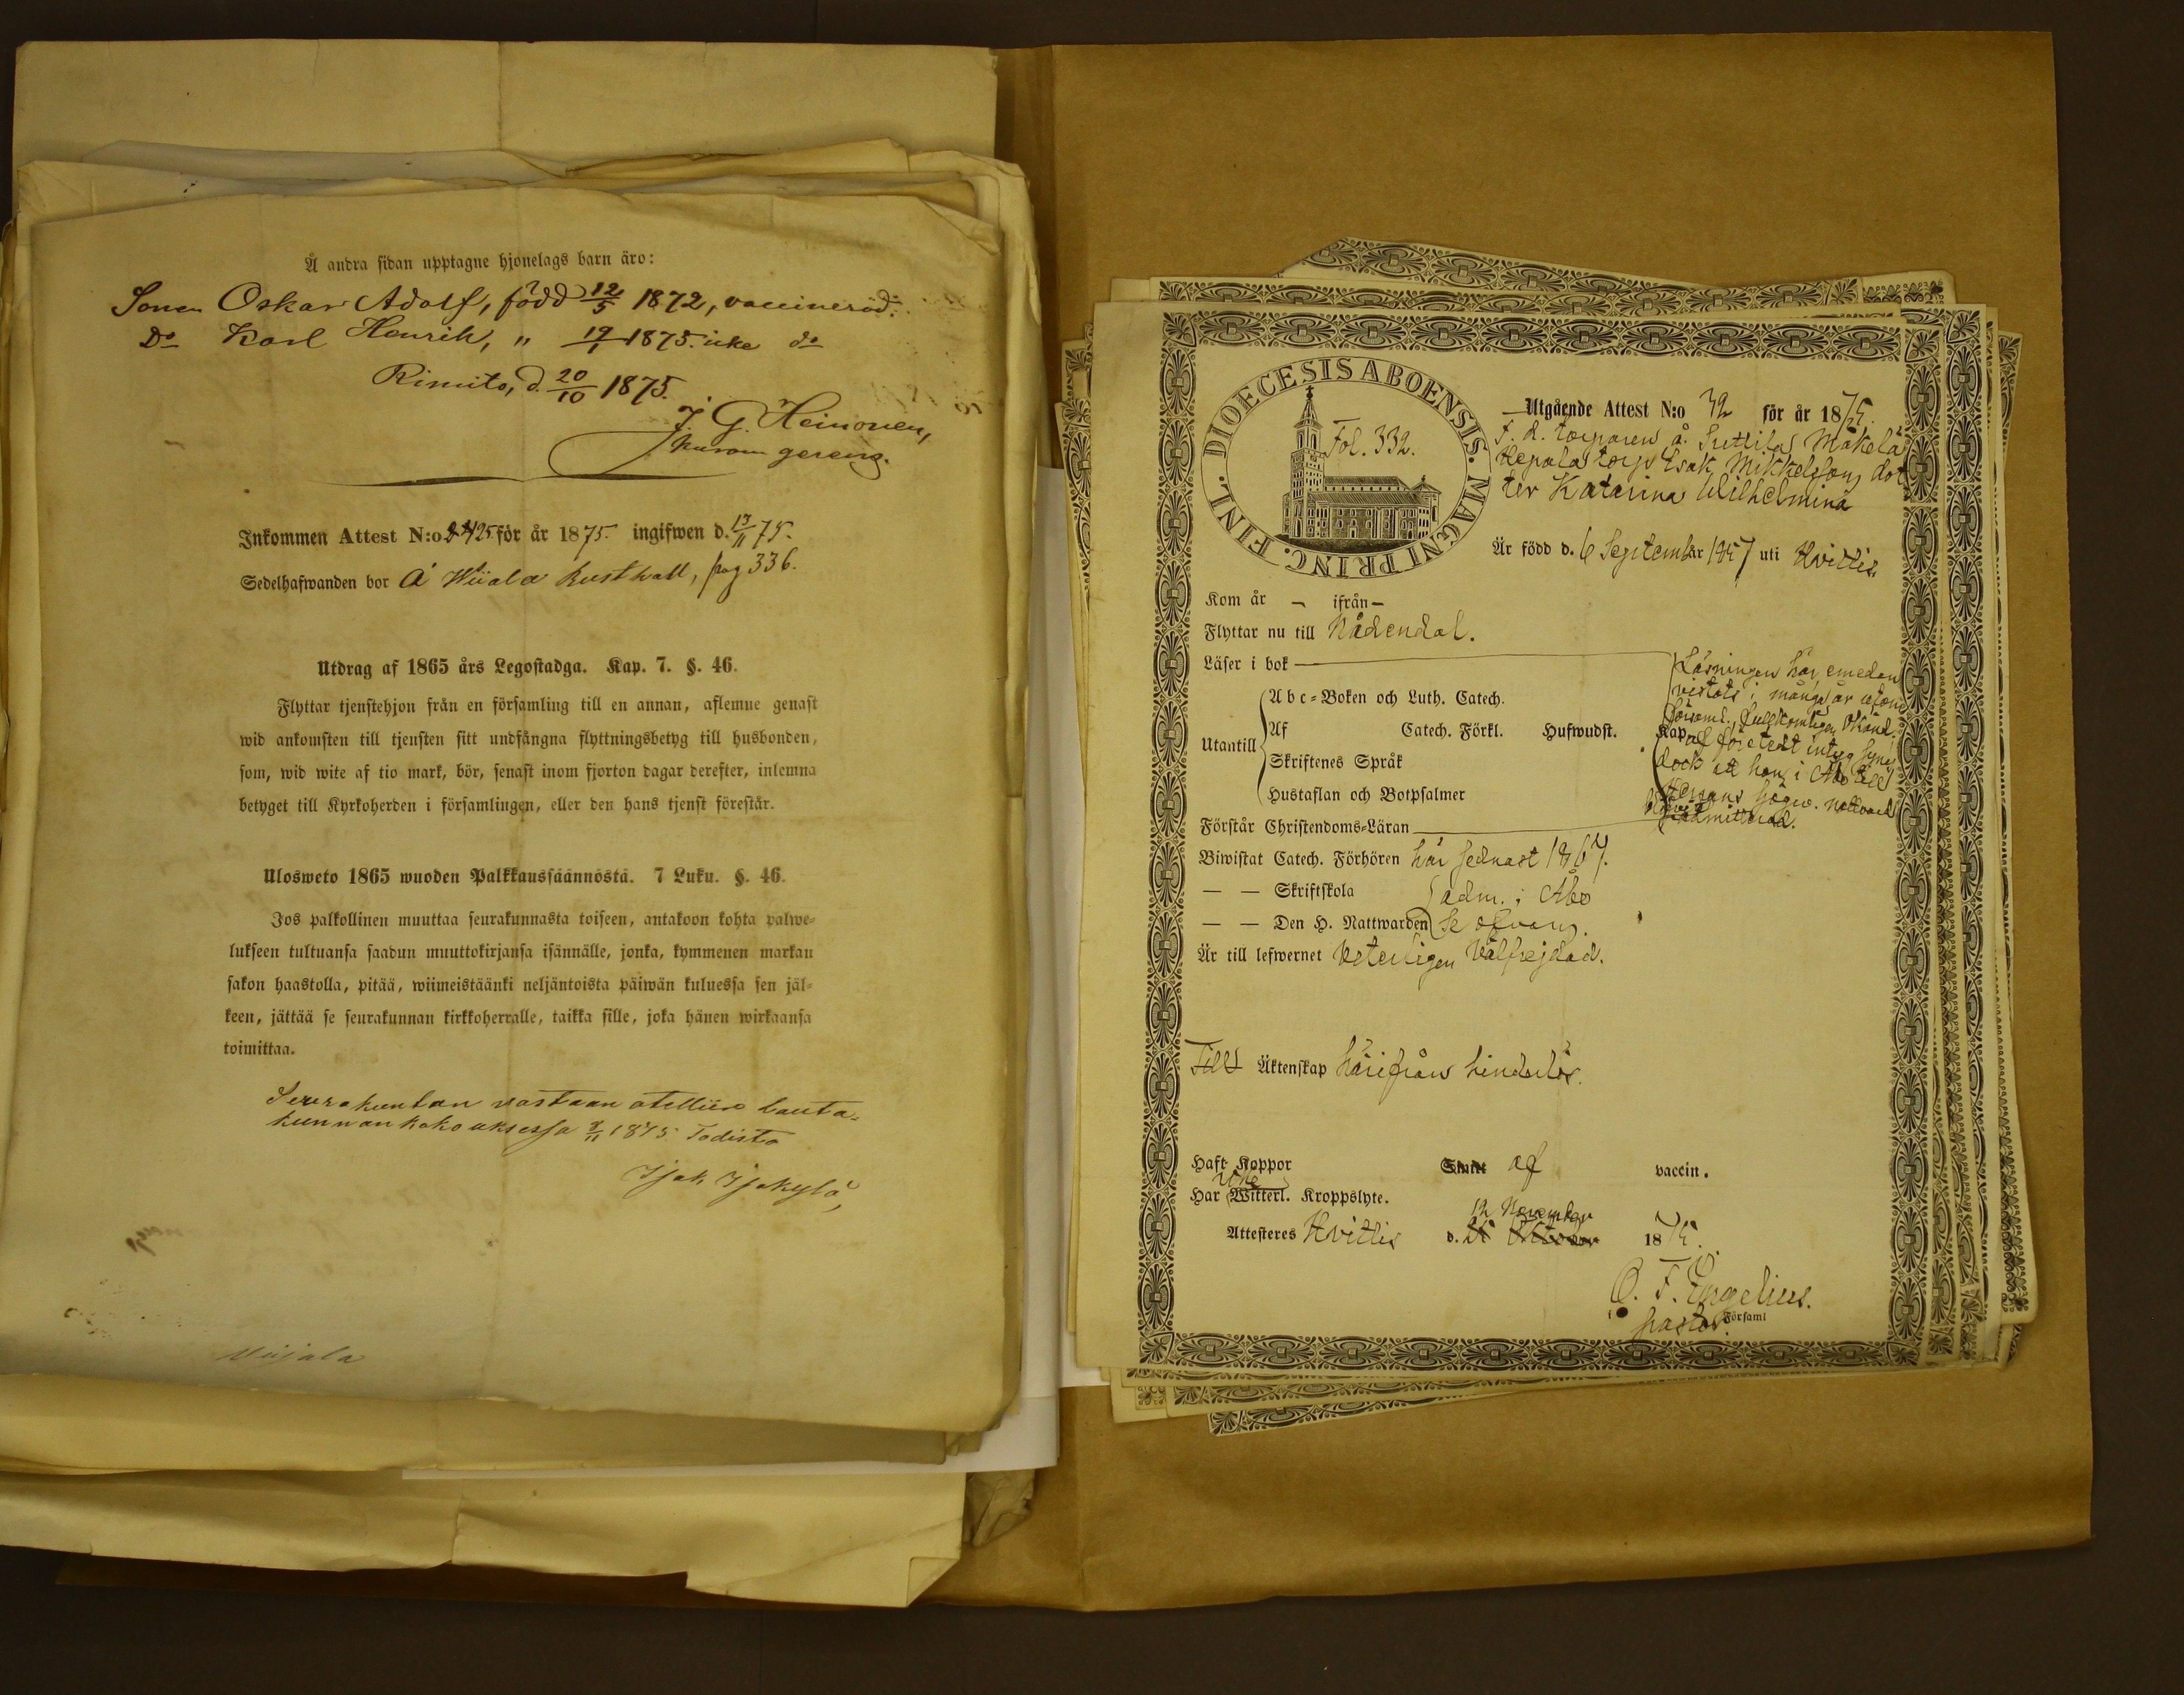 Å andra sidan upptagne hjonelags barn äro:
Sonen Oskar Adolf, född 12/5 1872, vaccineräd.
Do Karl Henrik, " 19/1 1875. icke do
Rimito, d. 20/10 1875.
J. G. Heinonen,
Inkommen Attest N:o 425 för år 1875. ingifwen d. 17/11 75.
Sedelhafwanden bor å Wiiala Rusthall, pag 336.
Utdrag af 1865 års Legostadga. Kap. 7. §. 46.
Flyttar tjenstehjon från en församling till en annan, aflemne genast
wid ankomsten till tjensten sitt undfångna flyttningsbetyg till husbonden,
som, wid wite af tio mark, bör, senast inom fjorton dagar derefter, inlemna
betyget till Kyrkoherden i församlingen, eller den hans tjenst förestår.
Ulosweto 1865 wuoden Palkkaussäännöstä. 7 Luku. §. 46.
Jos palkollinen muuttaa seurakunnasta toiseen, antakoon kohta palwe-
lukseen tultuansa saadun muuttokirjansa isännälle, jonka, kymmenen markan
sakon haastolla, pitää, wiimeistäänki neljäntoista päiwän kuluessa sen jäl-
keen, jättää se seurakunnan kirkkoherralle, taikka sille, joka hänen wirkaansa
toimittaa.
Seurakuntan vastaan otettiin lauta-
kunnan kokouksessa 7/11 1875. Todista
Isak Isokylä,
Wiijala
DIOECESIS ABOENSIS. MAGNI PRINC. FINL.
Fol. 332.
Utgående Attest N:o 32 för år 1875.
F. d. torparen å Suttila Mäkelä
Kepola torp Esak Mikkelsson, dot
ter Katarina Wilhelmina
Är född d. 6 September 1857 uti Hvittis.
Kom år – ifrån –
Flyttar nu till Nådendal.
Läser i bok
Läsningen här emedan
vistats i många år utom
församl., fullkomligen okänd.
af företedt intyg synes
dock att hon i Åbo till
Herrans högw. nattvard
blifvit admitterad.
Utantill
Abc-Boken och Luth. Catech.
Af Catech. Förkl. Hufwudst. Kap.
Skriftenes Språk
Hustaflan och Botpsalmer
Förstår Christendoms-Läran
Biwistat Catech. Förhören här sednast 1867.
— — Skriftskola adm. i Åbo
— — Den H. Nattwarden se ofvan.
Är till lefwernet veterligen välfrejdad.
Till Äktenskap härifrån hinderlös.
Haft Koppor af vaccin.
Har icke Witterl. Kroppslyte.
12 November
Attesteres Hvittis d. 1875.
O. F. Engelius.
pastor. Församl